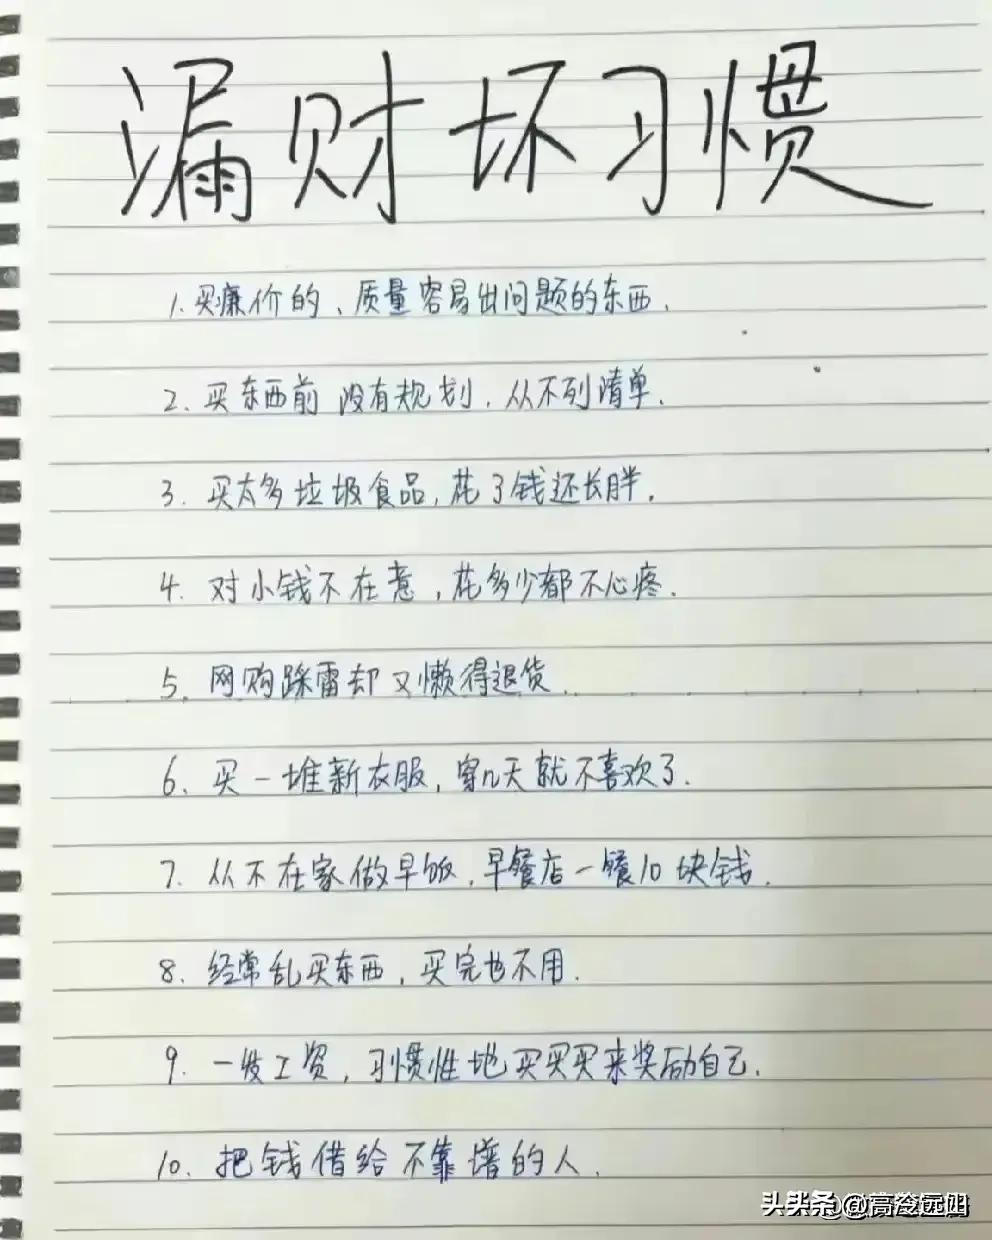 漏财坏习惯
1. 买廉价的、质量容易出问题的东西.
2. 买东西前没有规划.从不列清单.
3. 买太多垃圾食品,花了钱还长胖.
4. 对小钱不在意,花多少都不心疼.
5. 网购踩雷却又懒得退货.
6. 买一堆新衣服,穿几天就不喜欢了.
7. 从不在家做早饭,早餐店一餐10块钱.
8. 经常乱买东西,买完也不用.
9. 一发工资,习惯性地买买买来奖励自己.
10. 把钱借给不靠谱的人.
头条 @高冷远山